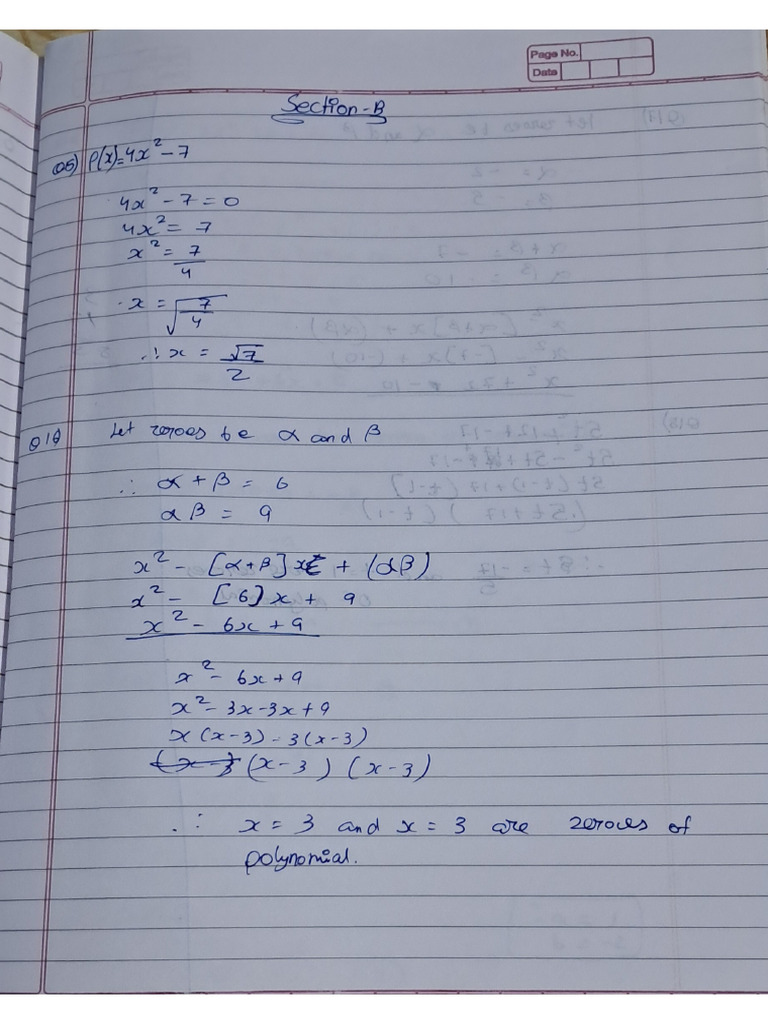 Page No.
Date
Section-B
Q5) P(x)=4x²-7
4x²-7=0
4x²=7
x²=7/4
x=√7/4
∴x=√7/2
Let zeroes be α and β
∴ α+β=6
αβ=9
x²-[α+β]x+(αβ)
x²-[6]x+9
x²-6x+9
x²-6x+9
x²-3x-3x+9
x(x-3)-3(x-3)
(x-3)(x-3)
∴ x=3 and x=3 are zeroes of
polynomial.